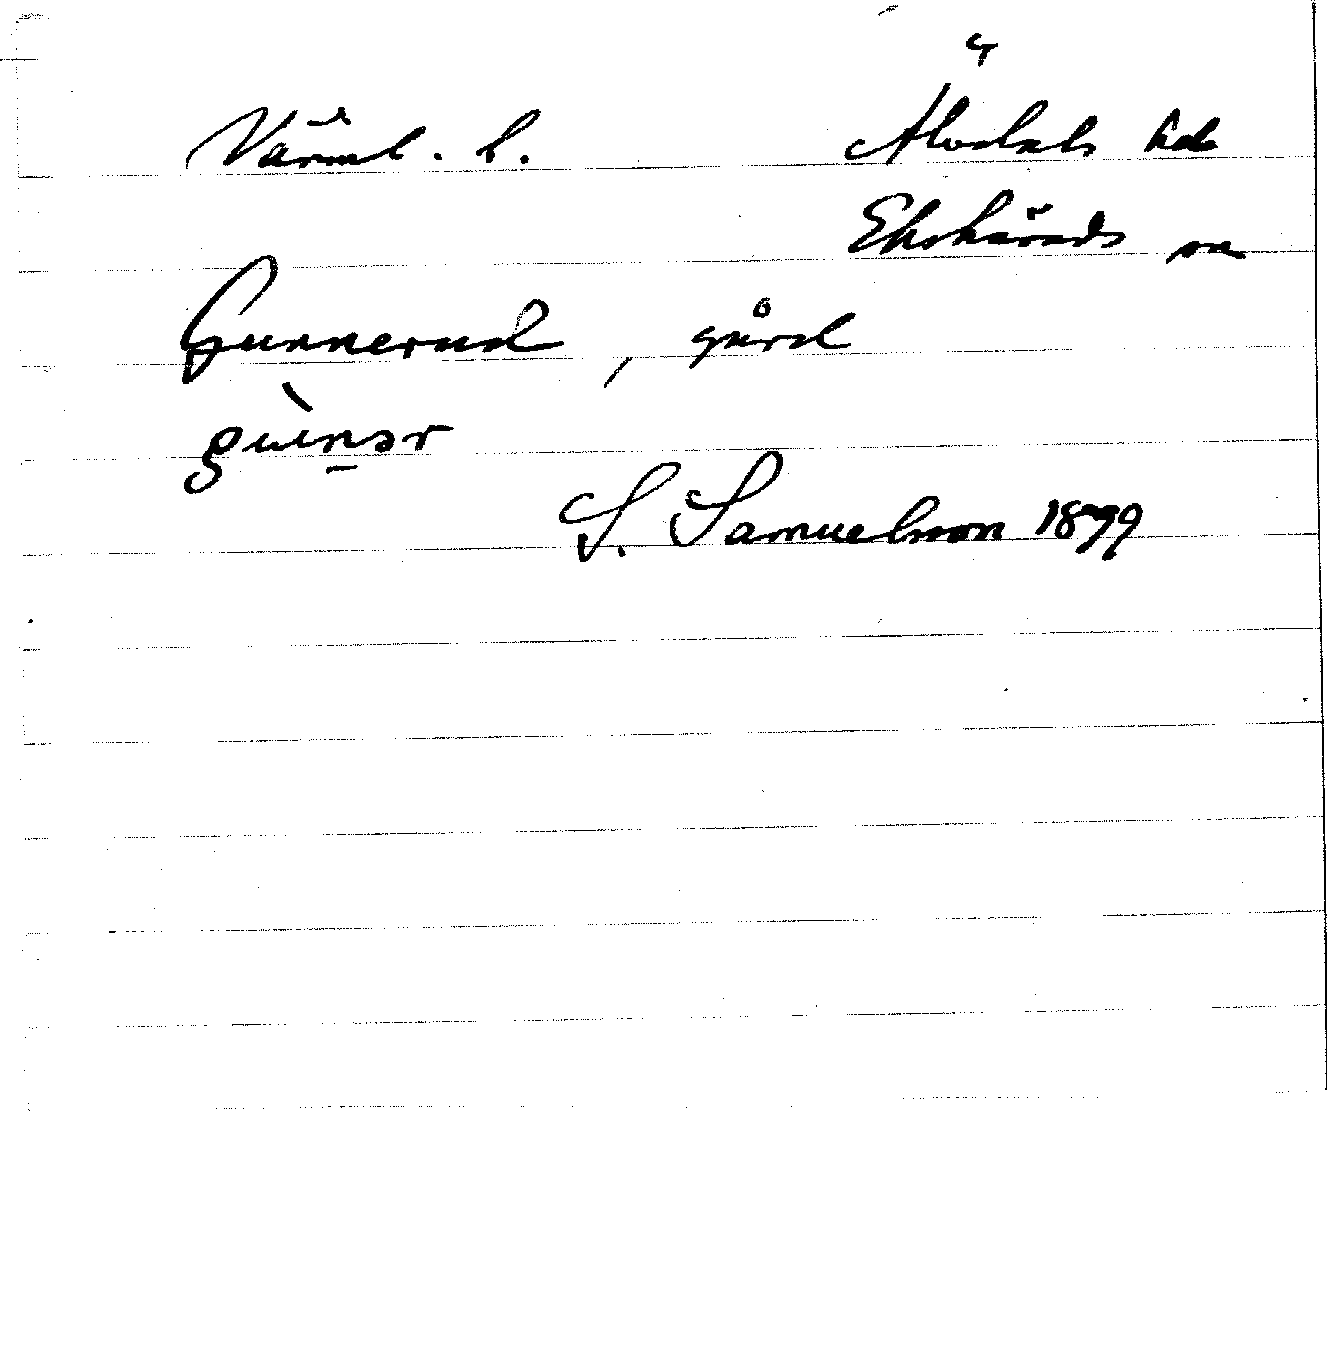 Värml. l. Älvdals hd
Ekshärads sn
Gunnerud, gård
S. Samuelsson 1899